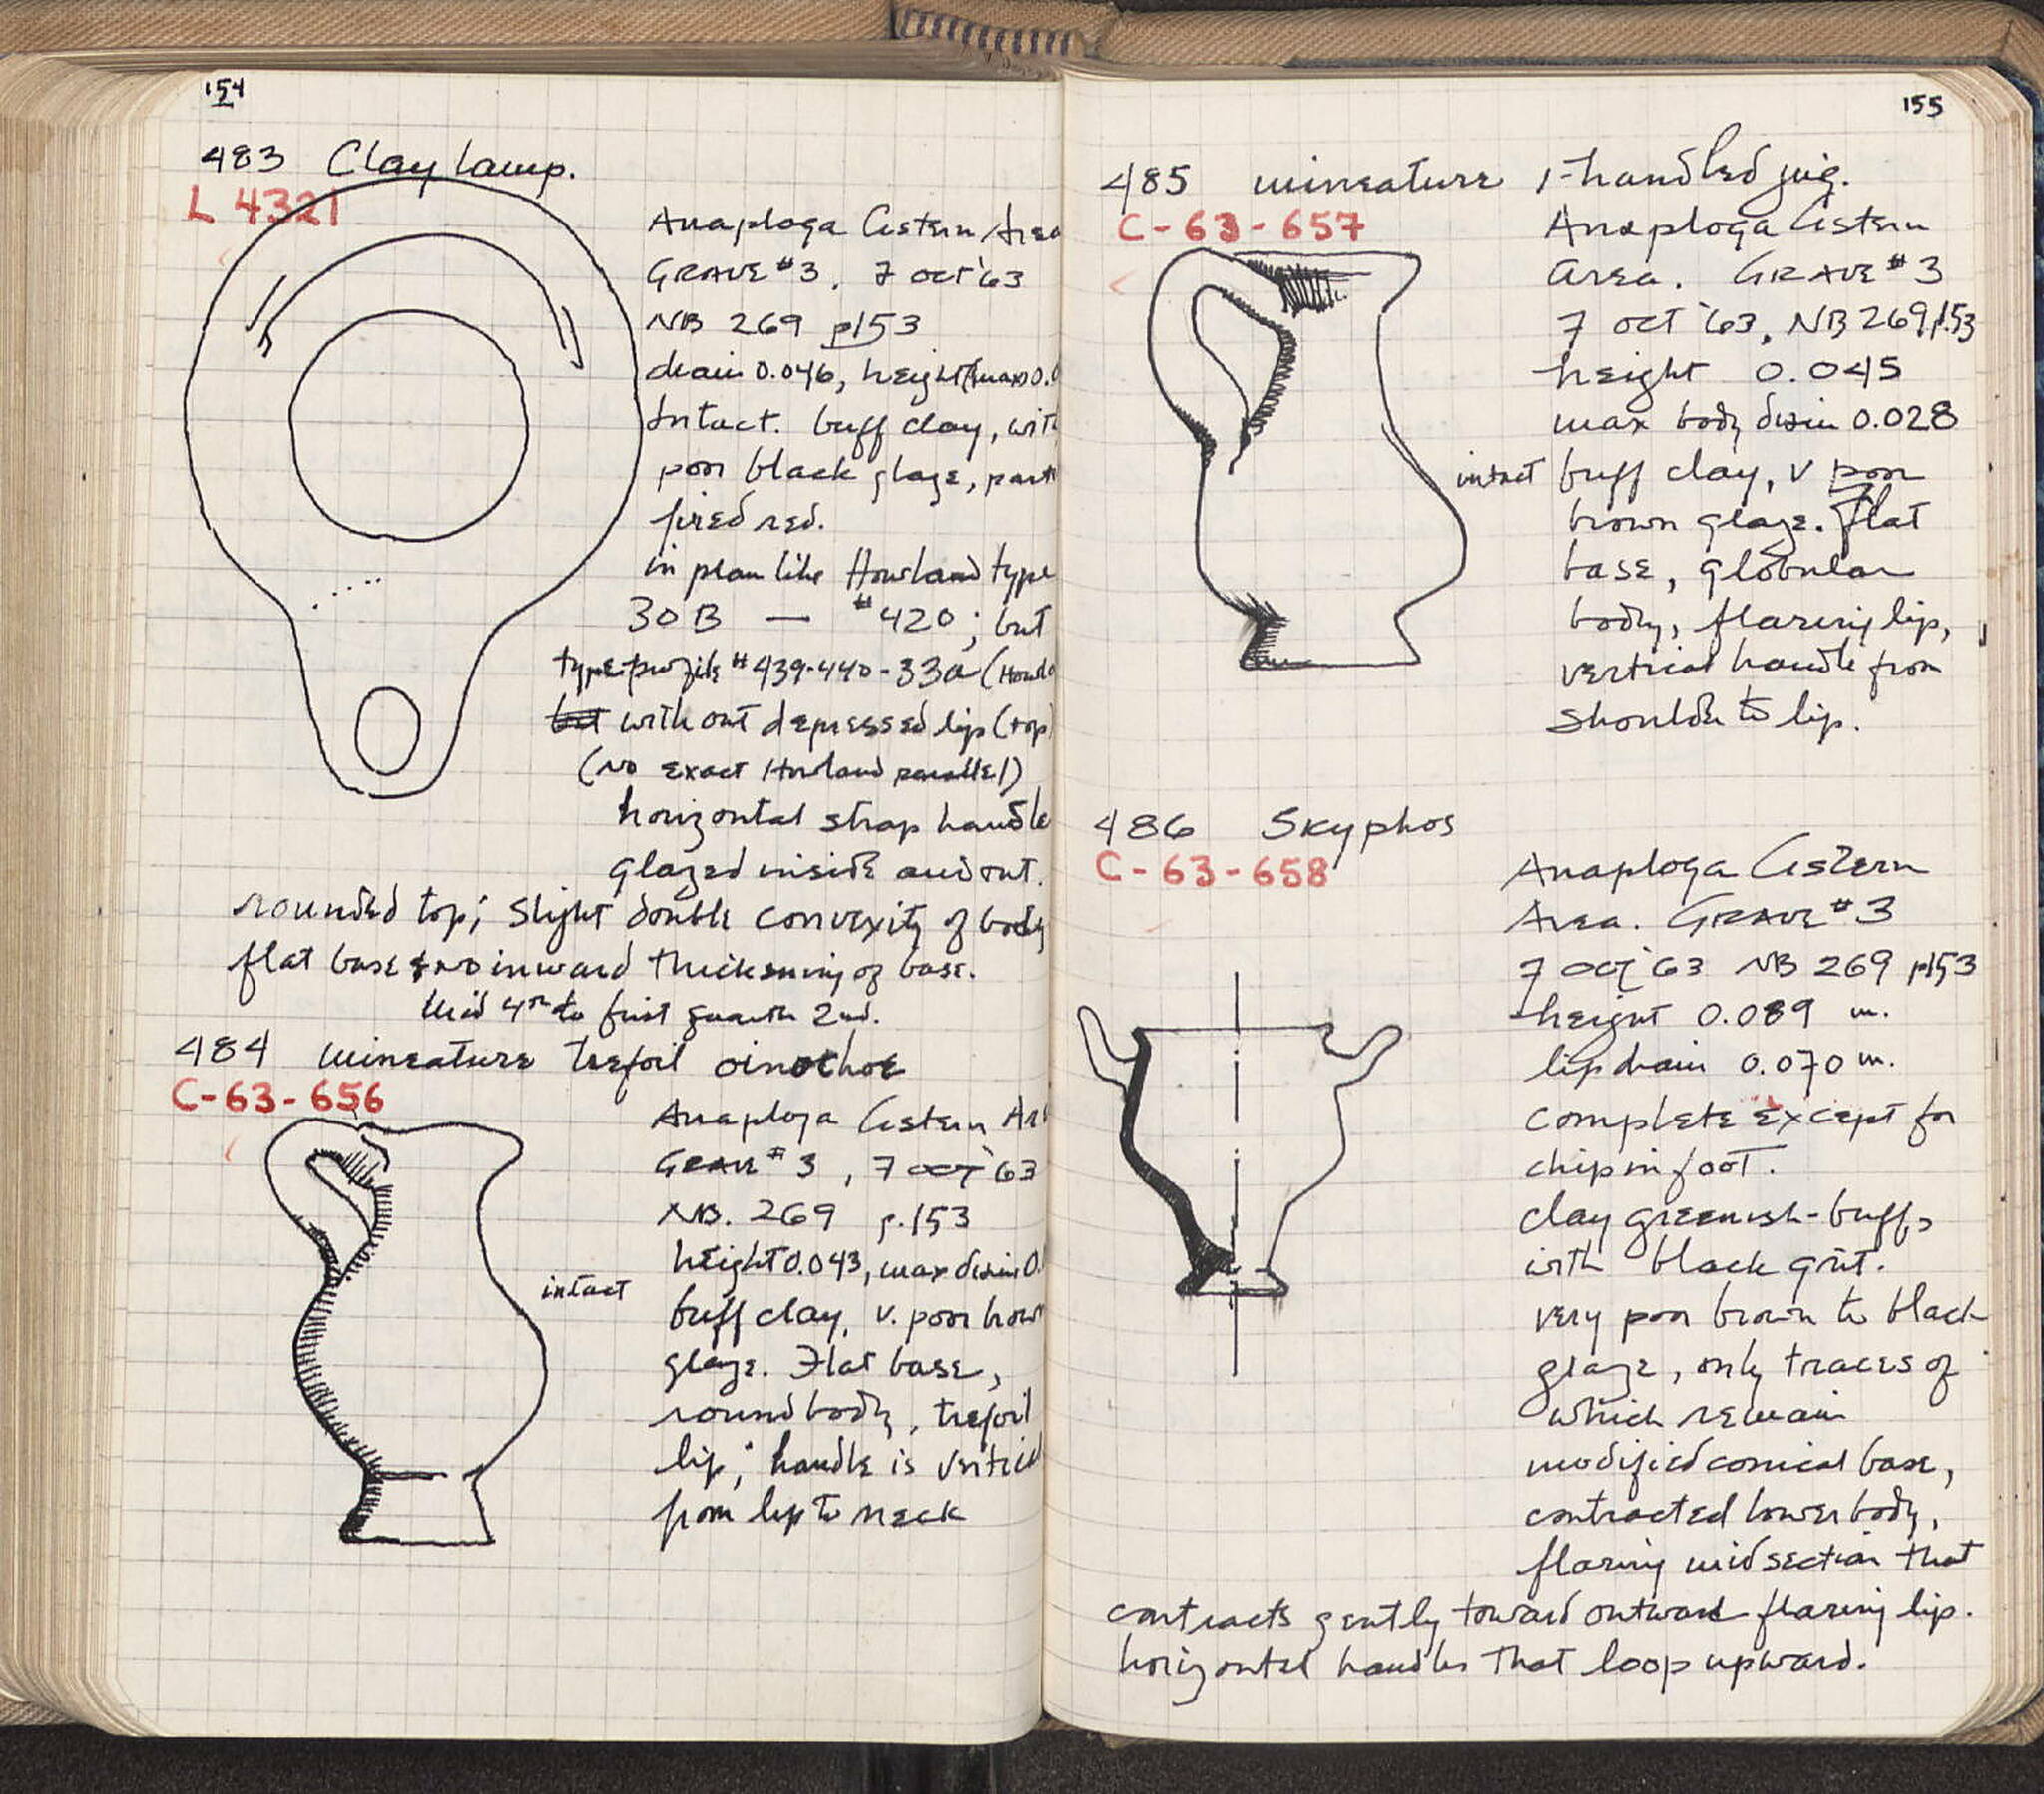 154
483 Clay lamp.
L 4321
Anaploga Cistern Area
GRAVE #3, 7 oct '63
NB 269 p153
diam 0.046, height (max) 0.0
Intact. buff clay, with
poor black glaze, part
fired red.
in plan like Howland type
30B — #420; but
type profile #439-440-33a (Howla
with out depressed lip (top)
(No exact Howland parallel)
horizontal strap handle
glazed inside and out.
rounded top; slight double convexity of body
flat base & no inward thickening of base.
Mid 4th to first quarter 2nd.
484 mineature trefoil oinochoe
C-63-656
Anaploga Cistern Ar
GRAVE #3, 7 oct '63
NB. 269 p.153
height 0.043, max diam 0.
intact
buff clay, v. poor brown
glaze. Flat base,
round body, trefoil
lip; handle is vertical
from lip to neck
155
485 mineature 1-handled jug.
C-63-657
Anaploga Cistern
area. GRAVE #3
7 oct '63, NB 269 p.153
height 0.045
max body diam 0.028
intact buff clay, v poor
brown glaze. Flat
base, globular
body, flaring lip,
vertical handle from
shoulder to lip.
486 Skyphos
C-63-658
Anaploga Cistern
Area. GRAVE #3
7 oct '63 NB 269 p153
height 0.089 m.
lip diam 0.070 m.
complete except for
chip in foot.
clay greenish-buff,
with black grit.
very poor brown to black
glaze, only traces of
which remain
modified conical base,
contracted lower body,
flaring mid section that
contracts gently toward outward flaring lip.
horizontal handles that loop upward.